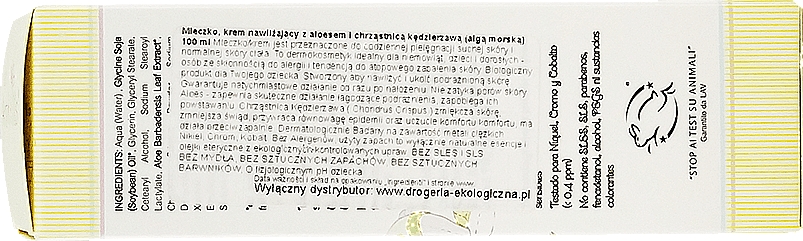 INGREDIENTS: Aqua (Water), Glycine Soja
(Soybean) Oil*, Glycerin, Glyceryl Stearate,
Cetearyl Alcohol, Sodium Stearoyl
Lactylate, Aloe Barbadensis Leaf Extract*,
Mleczko, krem nawilżający z aloesem i chrząstnicą kędzierzawą (algą morską)
100 ml Mleczko/krem jest przeznaczone do codziennej pielęgnacji suchej skóry i
normalnej skóry ciała. To dermokosmetyk idealny dla niemowląt, dzieci i dorosłych -
osób ze skłonnością do alergii i tendencją do atopowego zapalenia skóry. Biologiczny
produkt dla Twojego dziecka. Stworzony aby nawilżyć i ukoić podrażnioną skórę.
Gwarantuje natychmiastowe działanie od razu po nałożeniu. Nie zatyka porów skóry
Aloes - zapewnia skuteczne działanie łagodzące podrażnienia, zapobiega ich
powstawaniu. Chrząstnica kędzierzawa ( Chondrus Crispus ) zmiękcza skórę,
zmniejsza świąd, przywraca równowagę epidermi oraz uczucie komfortu komfortu, ma
działa przeciwzapalne. Dermatologicznie Badany na zawartość metali ciężkich
Nikiel, Chrom, Kobalt. Bez Alergenów, użyty zapach to wyłącznie naturalne esencje i
olejki eteryczne z ekologicznych/kontrolowanych upraw. BEZ SLES I SLS
BEZ MYDŁA, BEZ SZTUCZNYCH ZAPACHÓW, BEZ SZTUCZNYCH
BARWNIKÓW, O fizjologicznym pH dziecka
Data ważności i skład na opakowaniu „Ingredienti" i stronie www
Wyłączny dystrybutor: www.drogeria-ekologiczna.pl
Testado para Níquel, Cromo y Cobalto
(< 0.4 ppm)
No contiene SLES, SLS, parabenos,
fenoxietanol, alcohol, PEGS ni sustancias
colorantes
"STOP AI TEST SU ANIMALI"
Garantito da LAV